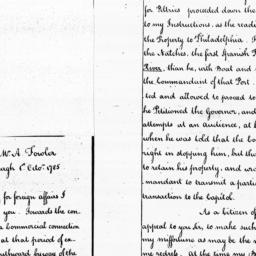 Mr. A. Fowler
augh 1st Octor. 1785
for foreign affairs I
you. Towards the con
Commercial connection
at that period of ex
outhward bureau of the
for Peltries proceeded down the
to my Instructions, as the readi
the Property to Philadelphia.
the Natches, the first Spanish
River, than he, with Boat and
the Commandant of that Port.
ted and allowed to proceed to
he Petitioned the Governor, and
attempts at an audience, at
when he was told that the Co
right in stopping him, but th
to retain his property, and wro
mandant to transmit a parti
transaction to the Capitol.
As a Citizen of
appeal to you Sr. to make such
my misfortune as may be the
me redress. At the time my B